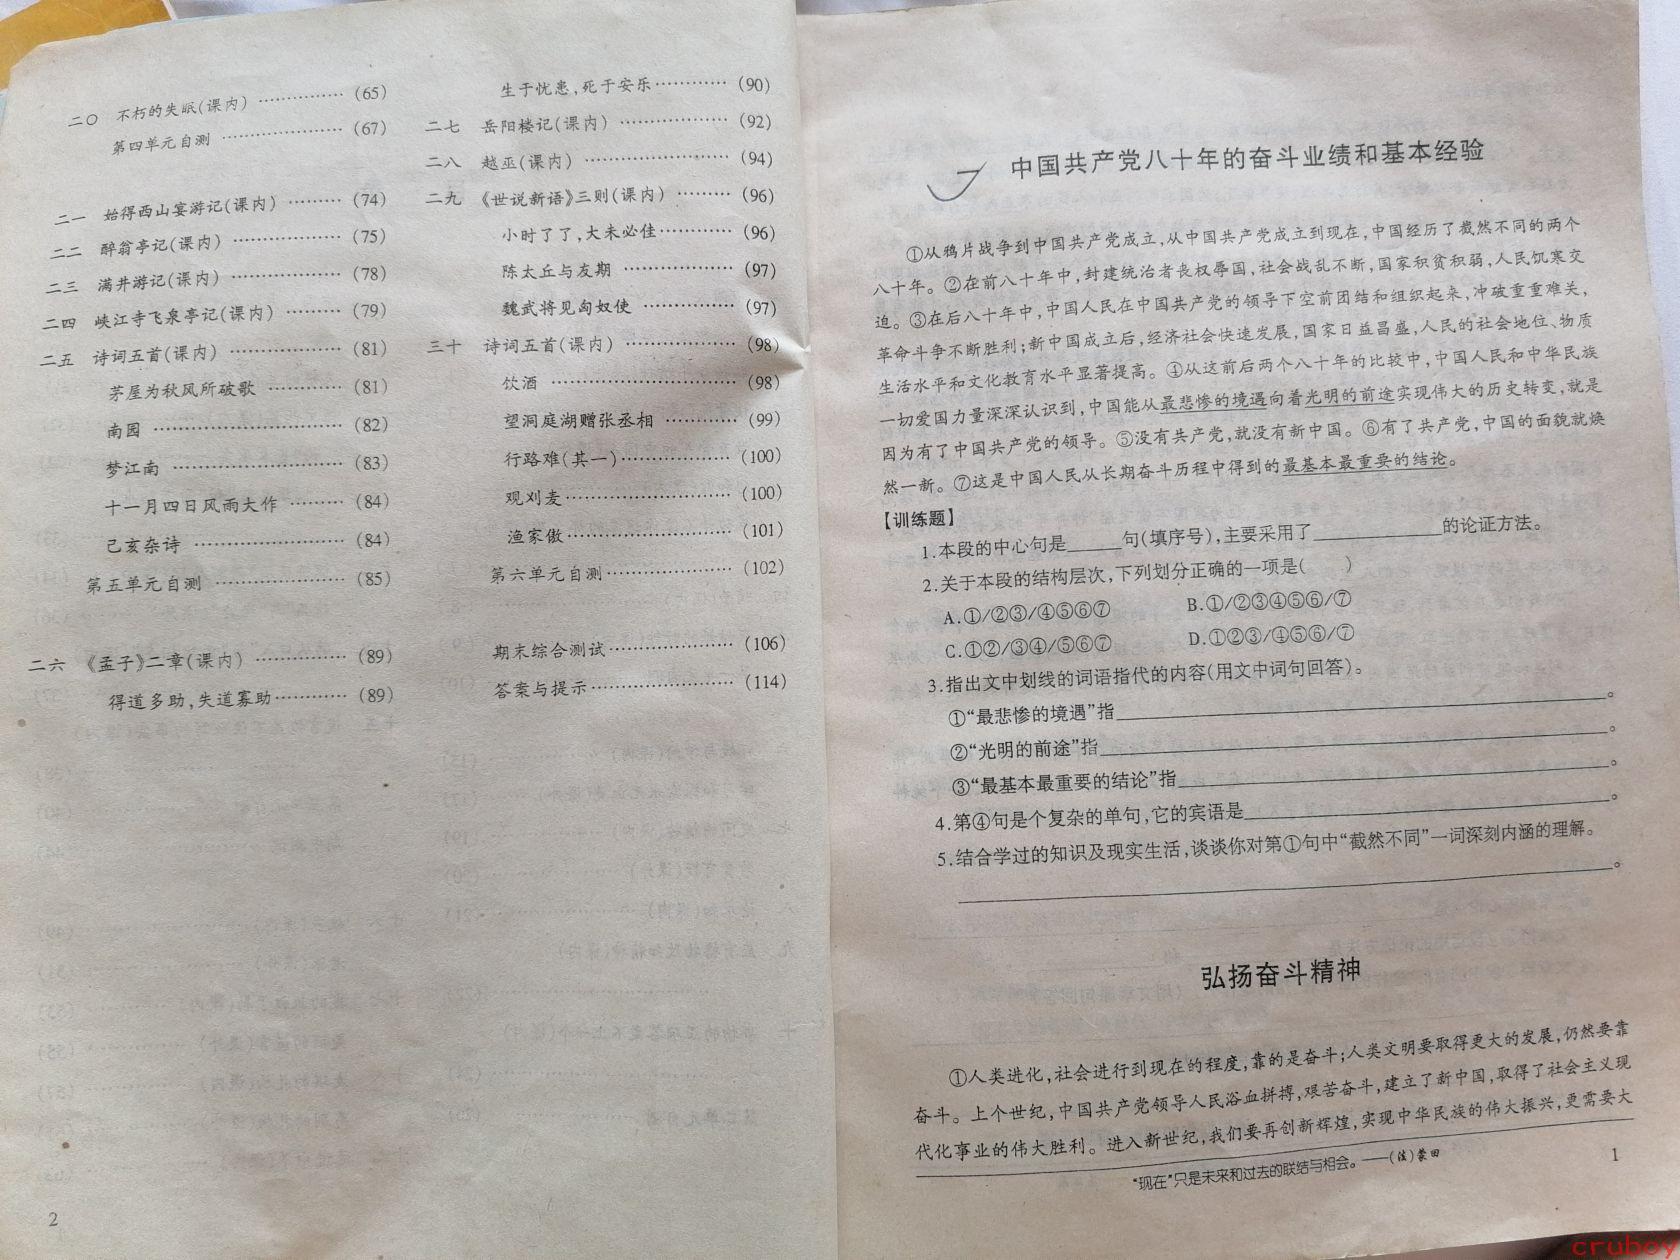 二〇 不朽的失眠(课内) …………… (65)
第四单元自测 ………………… (67)
二一 始得西山宴游记(课内) ……… (74)
二二 醉翁亭记(课内) ……………… (75)
二三 满井游记(课内) ……………… (78)
二四 峡江寺飞泉亭记(课内) ……… (79)
二五 诗词五首(课内) ……………… (81)
茅屋为秋风所破歌 ………… (81)
南园 ……………………… (82)
梦江南 …………………… (83)
十一月四日风雨大作 ……… (84)
己亥杂诗 ………………… (84)
第五单元自测 ……………… (85)
二六 《孟子》二章(课内) ………… (89)
得道多助,失道寡助………… (89)
2
生于忧患,死于安乐………… (90)
二七 岳阳楼记(课内) ……………… (92)
二八 越巫(课内) …………………… (94)
二九 《世说新语》三则(课内) ……… (96)
小时了了,大未必佳………… (96)
陈太丘与友期 ……………… (97)
魏武将见匈奴使 …………… (97)
三十 诗词五首(课内) ……………… (98)
饮酒 ……………………… (98)
望洞庭湖赠张丞相 ………… (99)
行路难(其一)……………… (100)
观刈麦……………………… (100)
渔家傲……………………… (101)
第六单元自测………………… (102)
期末综合测试………………… (106)
答案与提示…………………… (114)
中国共产党八十年的奋斗业绩和基本经验
①从鸦片战争到中国共产党成立,从中国共产党成立到现在,中国经历了截然不同的两个
八十年。②在前八十年中,封建统治者丧权辱国,社会战乱不断,国家积贫积弱,人民饥寒交
迫。③在后八十年中,中国人民在中国共产党的领导下空前团结和组织起来,冲破重重难关,
革命斗争不断胜利;新中国成立后,经济社会快速发展,国家日益昌盛,人民的社会地位、物质
生活水平和文化教育水平显著提高。④从这前后两个八十年的比较中,中国人民和中华民族
一切爱国力量深深认识到,中国能从最悲惨的境遇向着光明的前途实现伟大的历史转变,就是
因为有了中国共产党的领导。⑤没有共产党,就没有新中国。⑥有了共产党,中国的面貌就焕
然一新。⑦这是中国人民从长期奋斗历程中得到的最基本最重要的结论。
【训练题】
1.本段的中心句是______句(填序号),主要采用了______________的论证方法。
2.关于本段的结构层次,下列划分正确的一项是(    )
A.①/②③/④⑤⑥⑦ B.①/②③④⑤⑥/⑦
C.①②/③④/⑤⑥⑦ D.①②③/④⑤⑥/⑦
3.指出文中划线的词语指代的内容(用文中词句回答)。
①“最悲惨的境遇”指______________________________。
②“光明的前途”指______________________________。
③“最基本最重要的结论”指______________________________。
4.第④句是个复杂的单句,它的宾语是______________________________。
5.结合学过的知识及现实生活,谈谈你对第①句中“截然不同”一词深刻内涵的理解。
______________________________。
弘扬奋斗精神
①人类进化,社会进行到现在的程度,靠的是奋斗;人类文明要取得更大的发展,仍然要靠
奋斗。上个世纪,中国共产党领导人民浴血拼搏,艰苦奋斗,建立了新中国,取得了社会主义现
代化事业的伟大胜利。进入新世纪,我们要再创新辉煌,实现中华民族的伟大振兴,更需要大
“现在”只是未来和过去的联结与相会。——(法)蒙田
1
cruboy